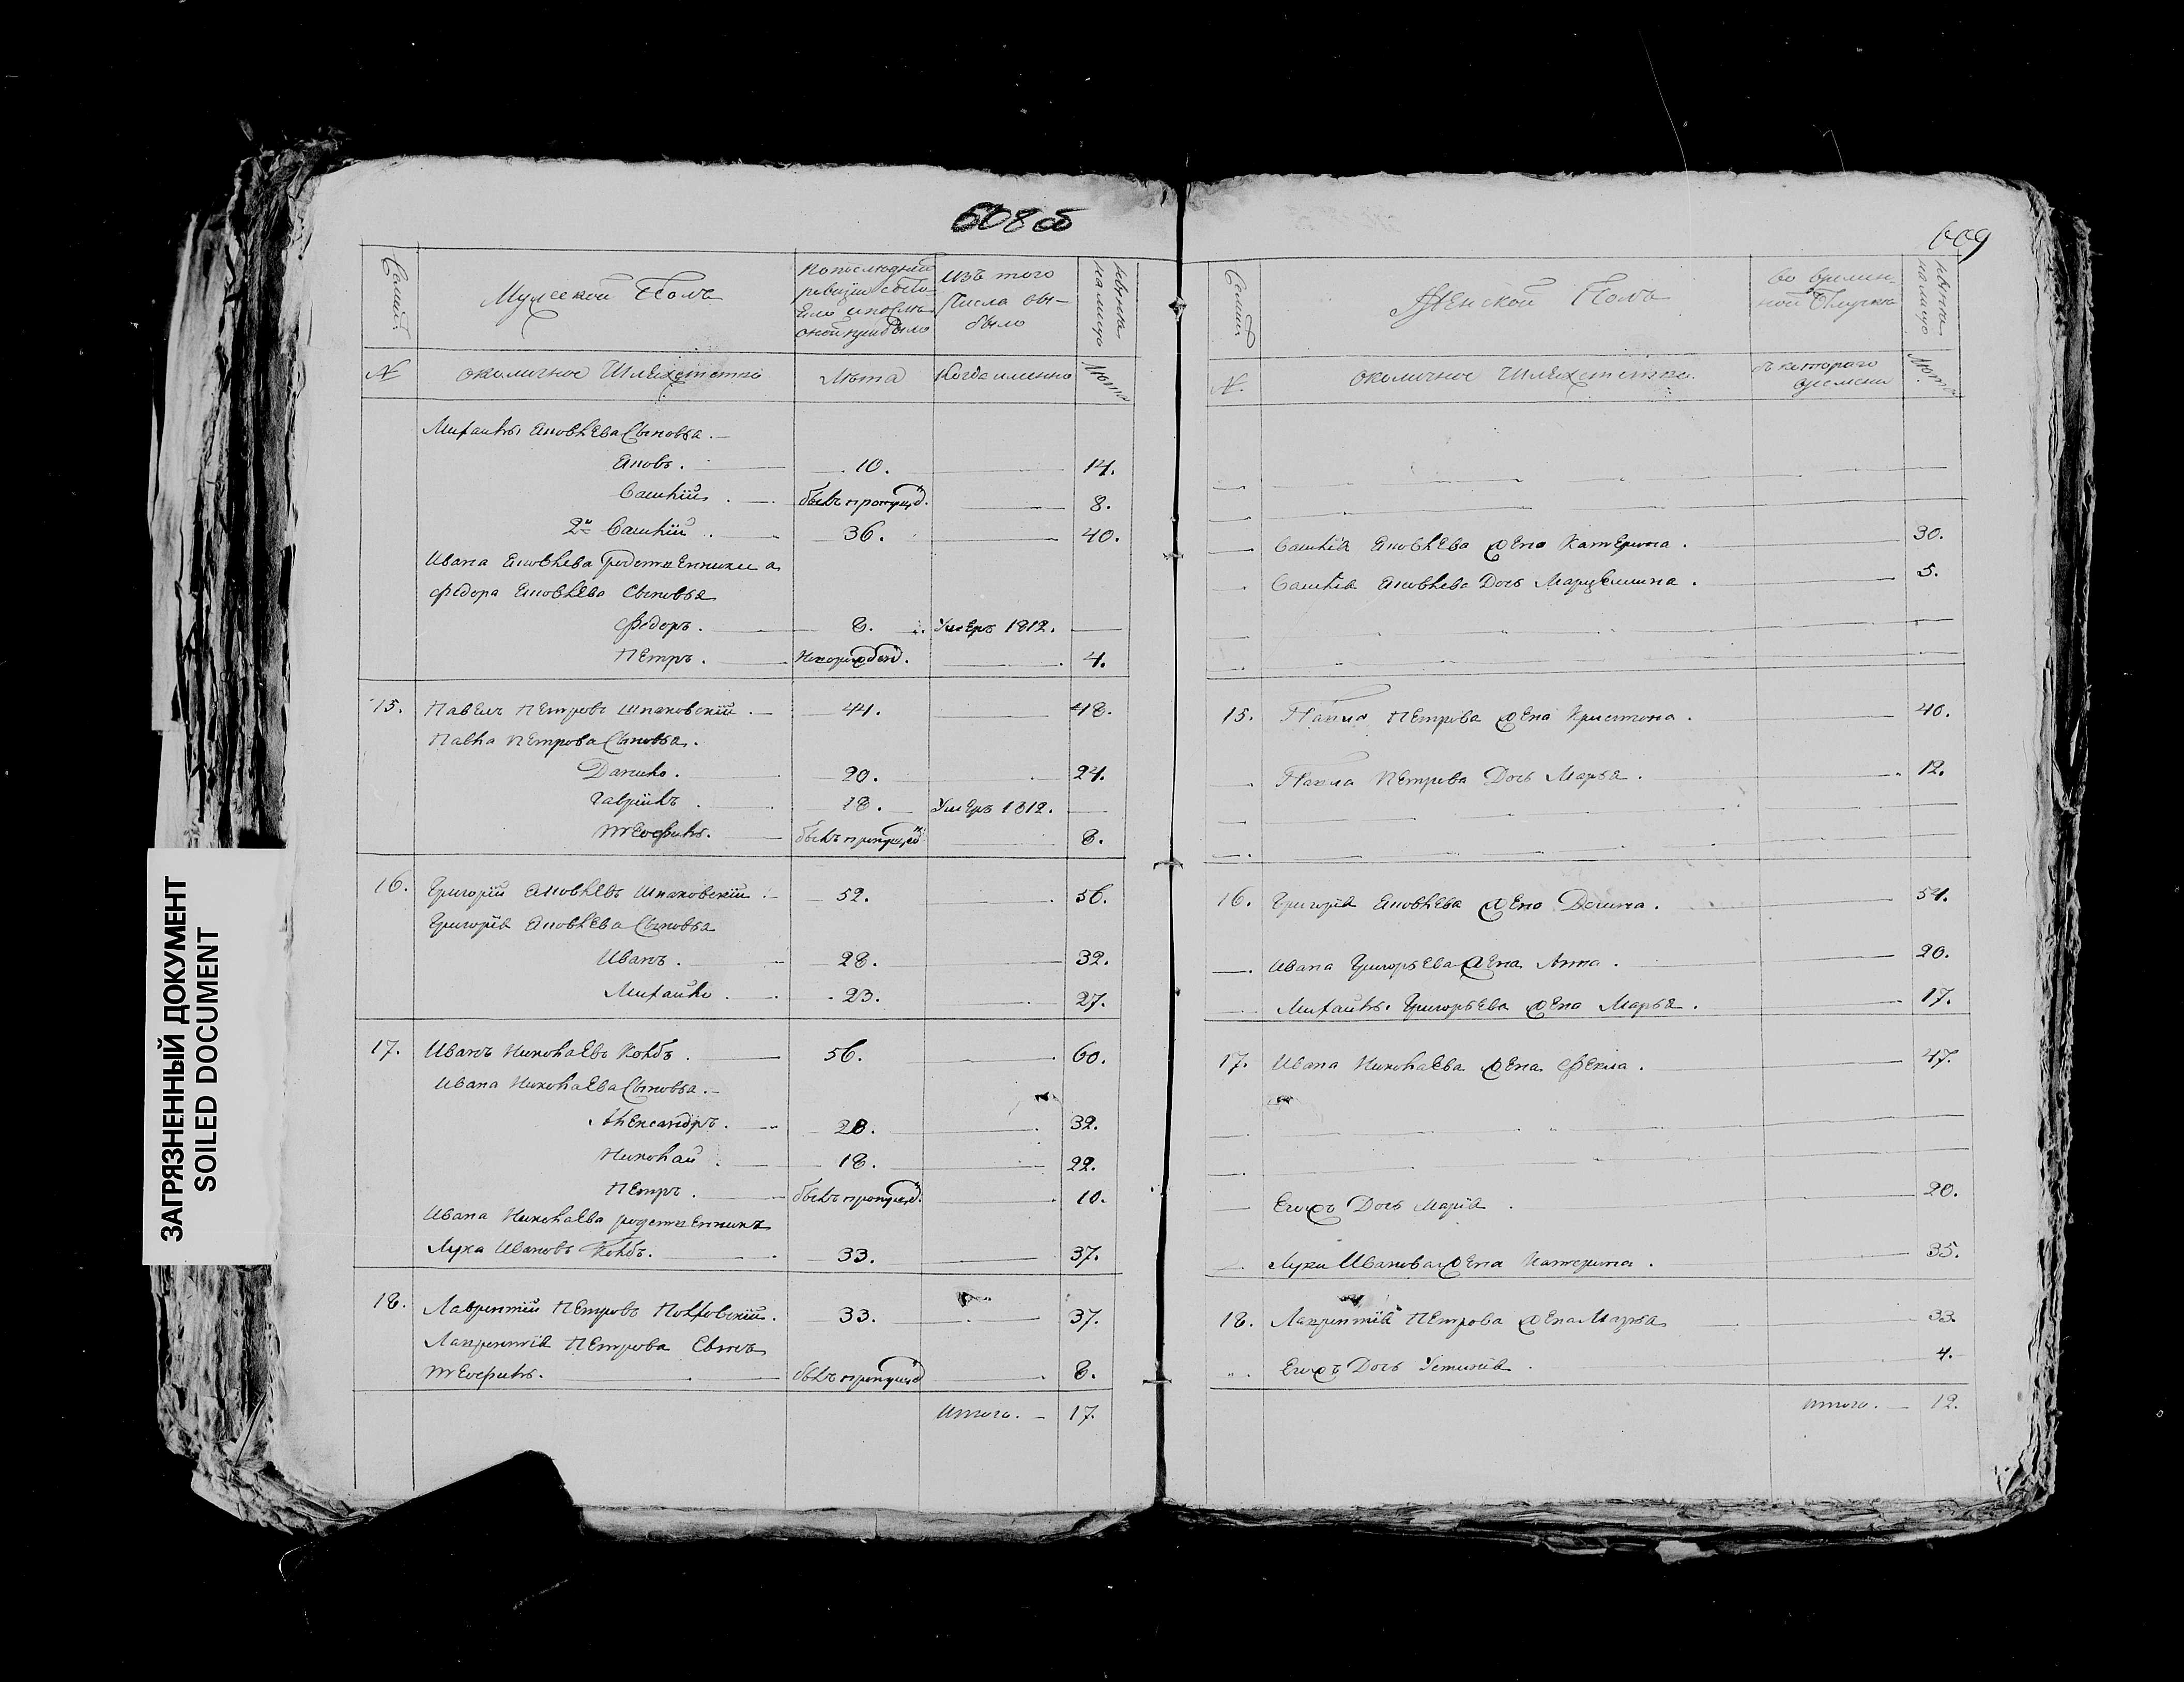 608 об
Семьи
Мужеской Полъ
По последней
ревизiи состо-
яло и после
оной прибыло
Изъ того
Числа вы-
было
ныне
на лицо
№
околичное Шляхетство
Лета
Когда именно
Лета
Михайлы Яковлева Сыновья.
Яковъ. 10. 14.
Василiй. былъ пропущ. 8.
2й Василiй. 36. 40.
Ивана Яковлева родственники а
Федора Яковлева Сыновья
Федоръ. 8. Умеръ 1812.
Петръ. Новорожден. 4.
15. Павелъ Петровъ Шпаковскiй. 44. 48.
Павла Петрова Сыновья.
Данило. 20. 24.
Гаврiилъ. 18. Умеръ 1812.
Теофилъ. былъ пропущен 8.
16. Григорiй Яковлевъ Шпаковскiй. 52. 56.
Григорiя Яковлева Сыновья
Иванъ. 28. 32.
Михайло. 23. 27.
17. Иванъ Николаевъ Колбъ. 56. 60.
Ивана Николаева Сыновья.
Александръ. 28. 32.
Николай. 18. 22.
Петръ. былъ пропущен. 10.
Ивана Николаева родственникъ
Лука Ивановъ Колбъ. 33. 37.
18. Лаврентiй Петровъ 33. 37.
Лаврентiя Петрова Сынъ
Теофилъ. былъ пропущен 8.
Итого. 17.
609
Семьи
Женской Полъ
Во времян-
ной отлучке
ныне
на лицо
№
околичное Шляхетство.
съ котораго
времени
Лета
Василiя Яковлева жена Катерина. 30.
Василiя Яковлева Дочь Марцелина. 5.
15. Павла Петрова жена Кристина. 40.
Павла Петрова Дочь Марья. 12.
16. Григорiя Яковлева жена 54.
Ивана Григорьева жена Анна. 20.
Михайлы Григорьева жена Марья. 17.
17. Ивана Николаева жена Фекла. 47.
Егожъ Дочь Марiя. 20.
Луки Иванова жена Катерина. 35.
18. Лаврентiя Петрова жена Марья 33.
Егожъ Дочь Устинiя. 4.
Итого. 12.
ЗАГРЯЗНЕННЫЙ ДОКУМЕНТ
SOILED DOCUMENT